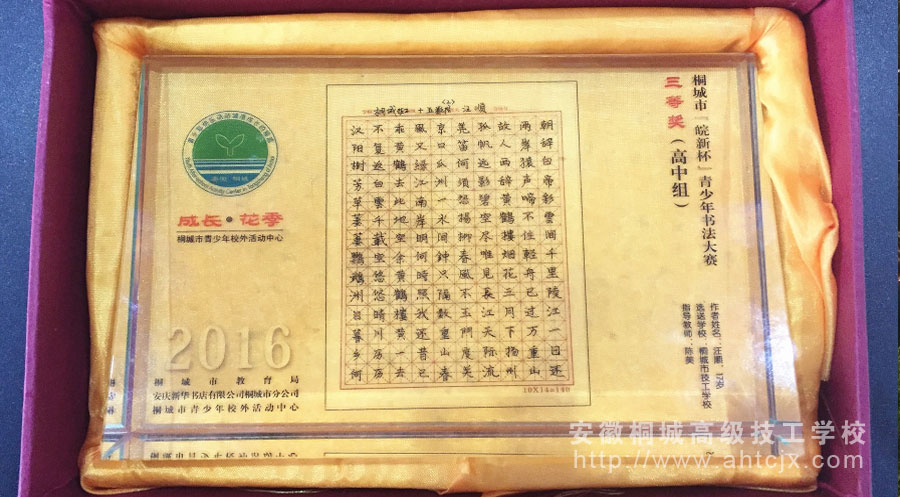 桐城市“皖新杯”青少年书法大赛
三等奖（高中组）
作者姓名：汪顺，17岁
选送学校：桐城市技工学校
指导教师：陈美
汪順
朝辞白帝彩雲间千里陵江一日还
两岸猿声啼不住輕舟已过万重山
故人西辞黄鹤樓烟花三月下扬州
孤帆远影碧空尽唯见長江天际流
羌笛何须怨楊柳春風不玉門度关
京口瓜洲一水间鐘只隔数重山春
風又绿江南岸明何時照我还昔已
乘黄鹤去此地空余黄鹤樓黄一去
不复返白雲千載空悠悠晴川历历
汉阳树芳草萋萋鹦鹉洲日暮乡何
10X14=140
成长·花季
桐城市青少年校外活动中心
2016
桐城市教育局
安庆新华书店有限公司桐城市分公司
桐城市青少年校外活动中心
安徽桐城高级技工学校
http://www.ahtcjx.com